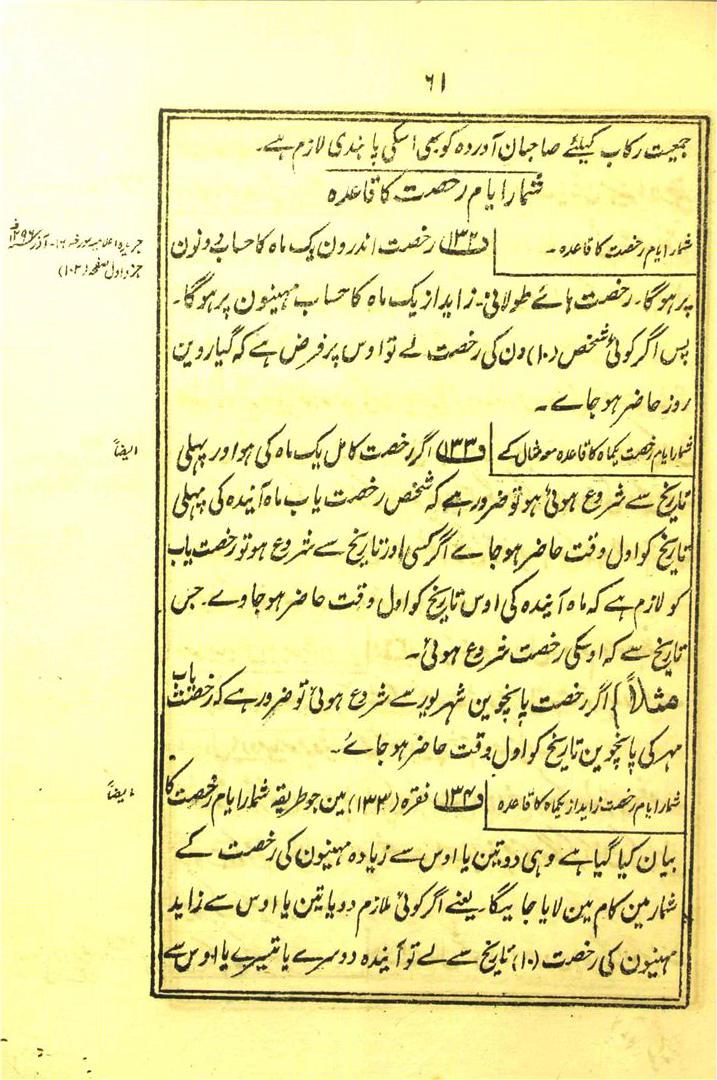 ۶۱
جمعیت رکاب کیلئے صاحبان آوردہ کو بھی اسکی پابندی لازم ہے۔
شمار ایام رخصت کا قاعدہ
شمار ایام رخصت کا قاعدہ ۔
ف۱۳۲) رخصت اندرون یک ماہ کا حساب دنون
جریدہ اعلامیہ مورخہ ۱۶۔ آذر ۱۲۹۶ف
جزو اول صفحہ (۱۰۲)
پر ہوگا۔ رخصت ہائے طولانی۔ زاید از یک ماہ کا حساب مہینون پر ہوگا۔
پس اگر کوئی شخص (۱۰) دن کی رخصت لے تو اوس پر فرض ہے کہ گیاروین
روز حاضر ہو جاے ۔
شمار ایام رخصت یکماہ کا قاعدہ معہ مثال کے
ف۱۳۳) اگر رخصت کامل یک ماہ کی ہو اور پہلی
ایضاً
تاریخ سے شروع ہوئی ہو تو ضرور ہے کہ شخص رخصت یاب ماہ آیندہ کی پہلی
تاریخ کو اول وقت حاضر ہو جاے اگر کسی اور تاریخ سے شروع ہو تو رخصت یاب
کو لازم ہے کہ ماہ آیندہ کی اوس تاریخ کو اول وقت حاضر ہو جاوے۔ جس
تاریخ سے کہ اوسکی رخصت شروع ہوئی۔
مثلاً) اگر رخصت پانچوین شہریور سے شروع ہوئی تو ضرور ہے کہ رخصت یاب
مہر کی پانچوین تاریخ کو اول وقت حاضر ہو جاۓ۔
شمار ایام رخصت زاید از یکماہ کا قاعدہ
ف۱۳۴) فقرہ (۱۳۳) مین جو طریقہ شمار ایام رخصت کا
ایضاً
بیان کیا گیا ہے وہی دو تین یا اوس سے زیادہ مہینون کی رخصت کے
شمار مین کام مین لایا جائیگا۔ یعنے اگر کوئی ملازم دو یا تین یا اوس سے زاید
مہینون کی رخصت (۱۰) تاریخ سے لے تو آیندہ دوسرے یا تیسرے یا اوس سے